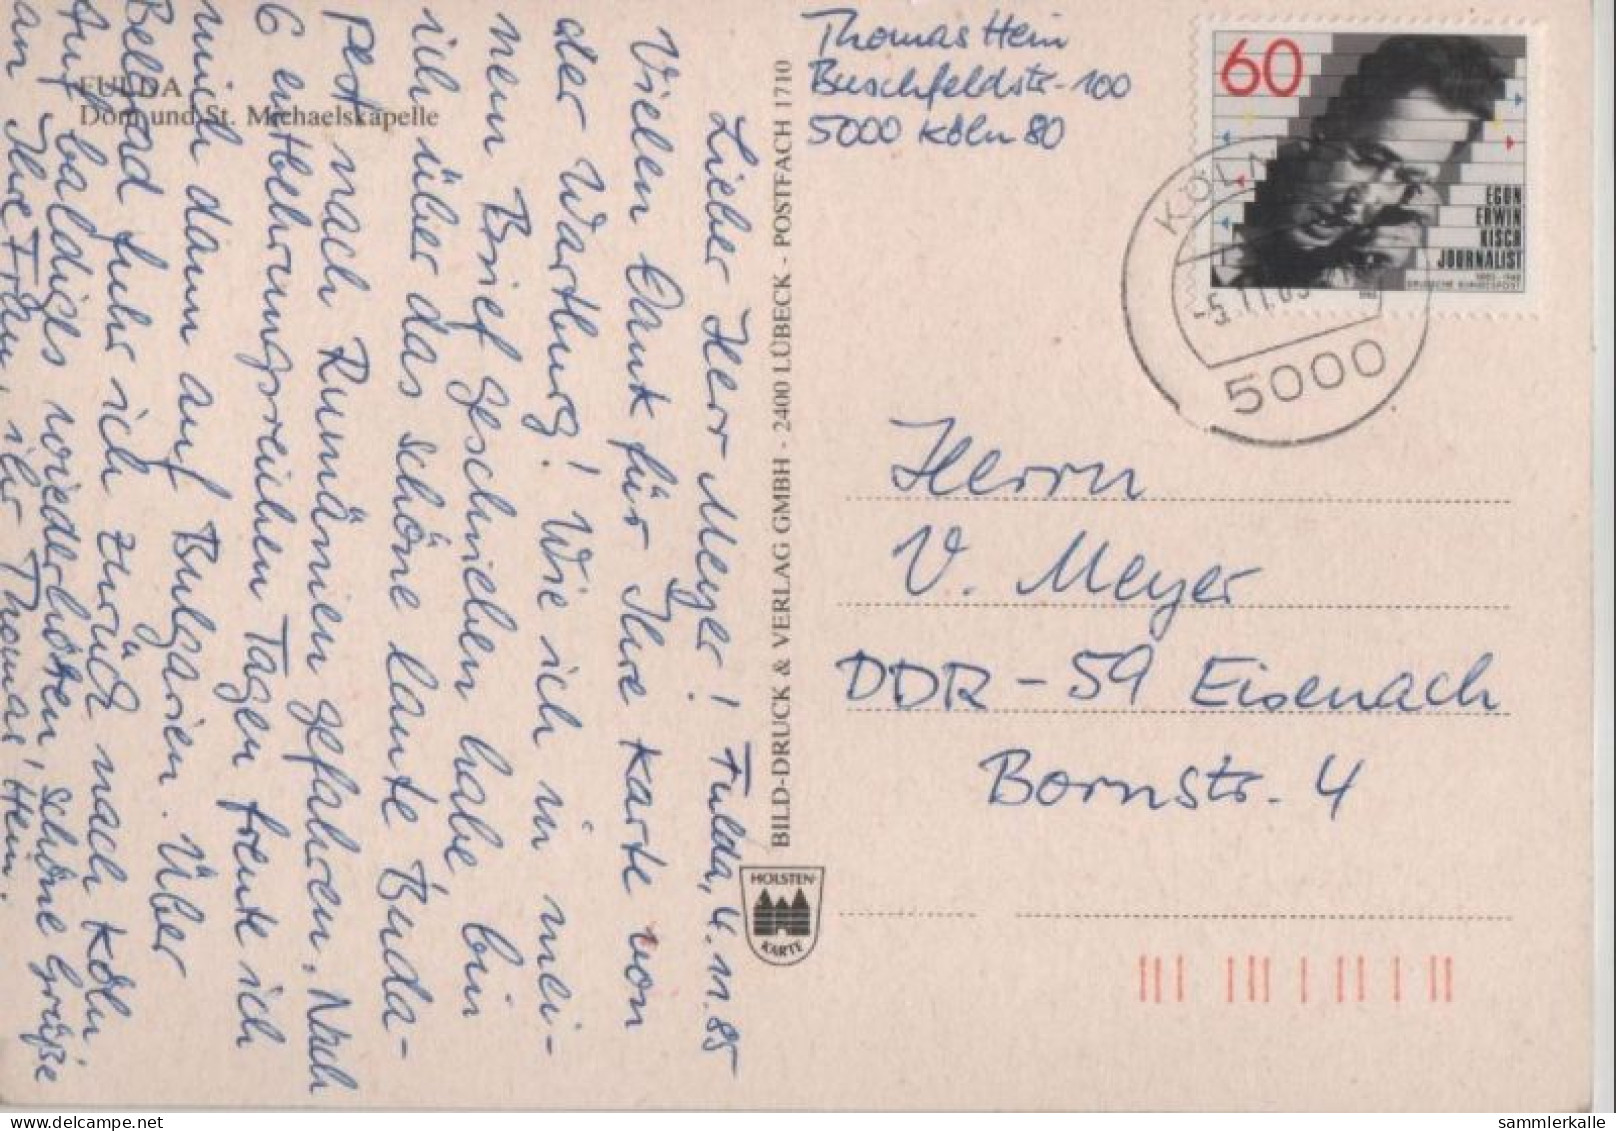 Thomas Hein
Buschfeldstr-100
5000 Köln 80
60
EGON
ERWIN
KISCH
JOURNALIST
1885-1948
DEUTSCHE BUNDESPOST
KÖLN
5000
Herrn
V. Meyer
DDR-59 Eisenach
Bornstr. 4
Fulda, 4.11.85
Lieber Herr Meyer!
Vielen Dank für Ihre Karte von
der Wartburg! Wie ich in mei-
nem Brief geschrieben habe, bin
ich über das schöne laute Buda-
pest nach Rumänien gefahren. Nach
6 entbehrungsreichen Tagen freute ich
mich dann auf Bulgarien. Über
Belgrad fuhr ich zurück nach Köln.
Auf baldiges wiederhören, schöne Grüße
an Ihre Frau, ihr Thomas Hein.
FULDA
Dom und St. Michaelskapelle
BILD-DRUCK & VERLAG GMBH - 2400 LÜBECK - POSTFACH 1710
HOLSTEN-
KARTE
sammlerkalle